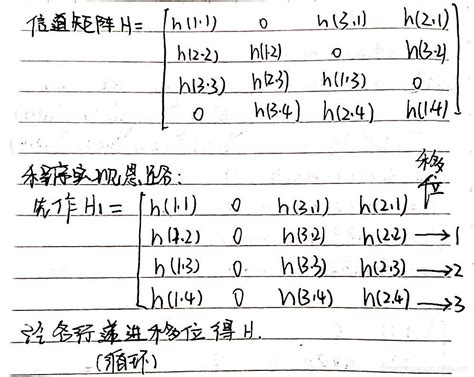 信道矩阵H= h(1.1) 0 h(3.1) h(2.1)
h(2.2) h(1.2) 0 h(3.2)
h(3.3) h(2.3) h(1.3) 0
0 h(3.4) h(2.4) h(1.4)
程序实现思路: 移位
先作H1= h(1.1) 0 h(3.1) h(2.1)
h(1.2) 0 h(3.2) h(2.2) →1
h(1.3) 0 h(3.3) h(2.3) →2
h(1.4) 0 h(3.4) h(2.4) →3
各行递进移位得H.
(循环)